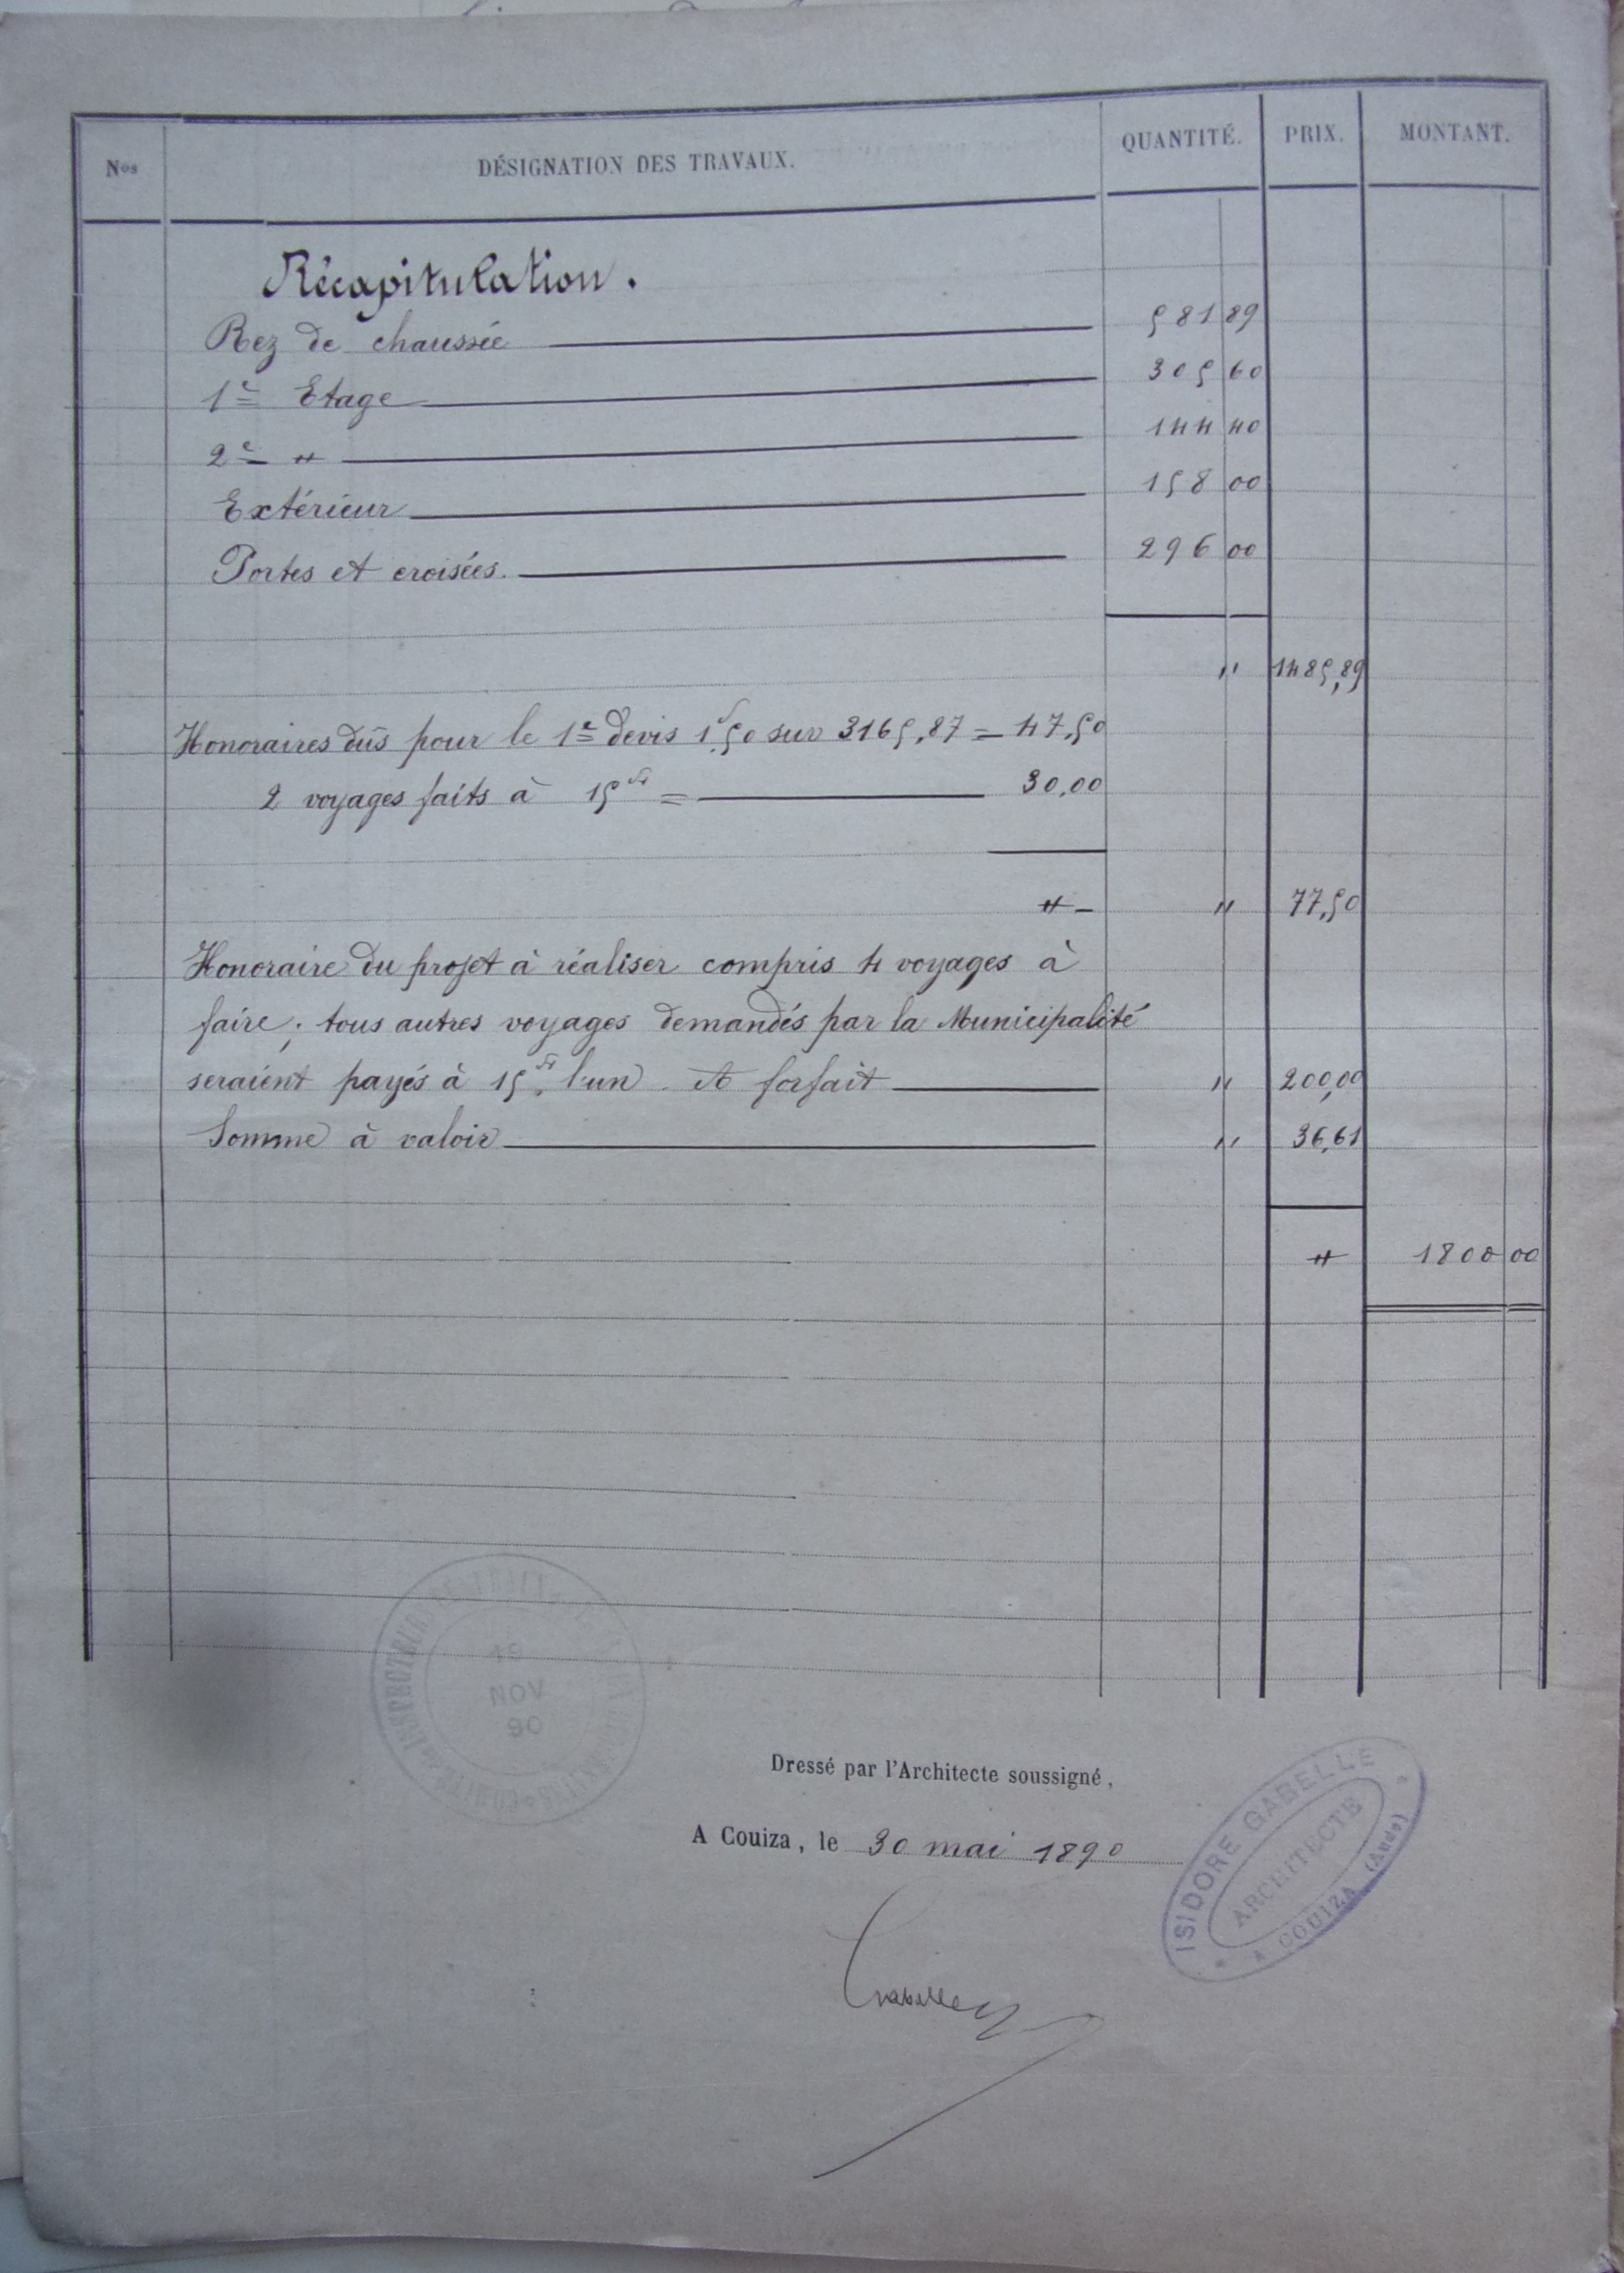 Nos DÉSIGNATION DES TRAVAUX. QUANTITÉ. PRIX. MONTANT.
Récapitulation.
Rez de chaussée 581 89
1e Etage 305 60
2e " 144 40
Extérieur 158 00
Portes et croisées. 296 00
" 1485,89
Honoraires dûs pour le 1er devis 1f,50 sur 3165,87 = 47,50
2 voyages faits à 15fr = 30,00
" " 77,50
Honoraire du projet à réaliser compris 4 voyages à
faire; tous autres voyages demandés par la Municipalité
seraient payés à 15fr. l'un. A forfait " 200,00
Somme à valoir " 36,61
" 1800 00
19
NOV
90
Dressé par l'Architecte soussigné,
A Couiza, le 30 mai 1890
ISIDORE GABELLE
ARCHITECTE
A COUIZA (Aude)
Gabelle